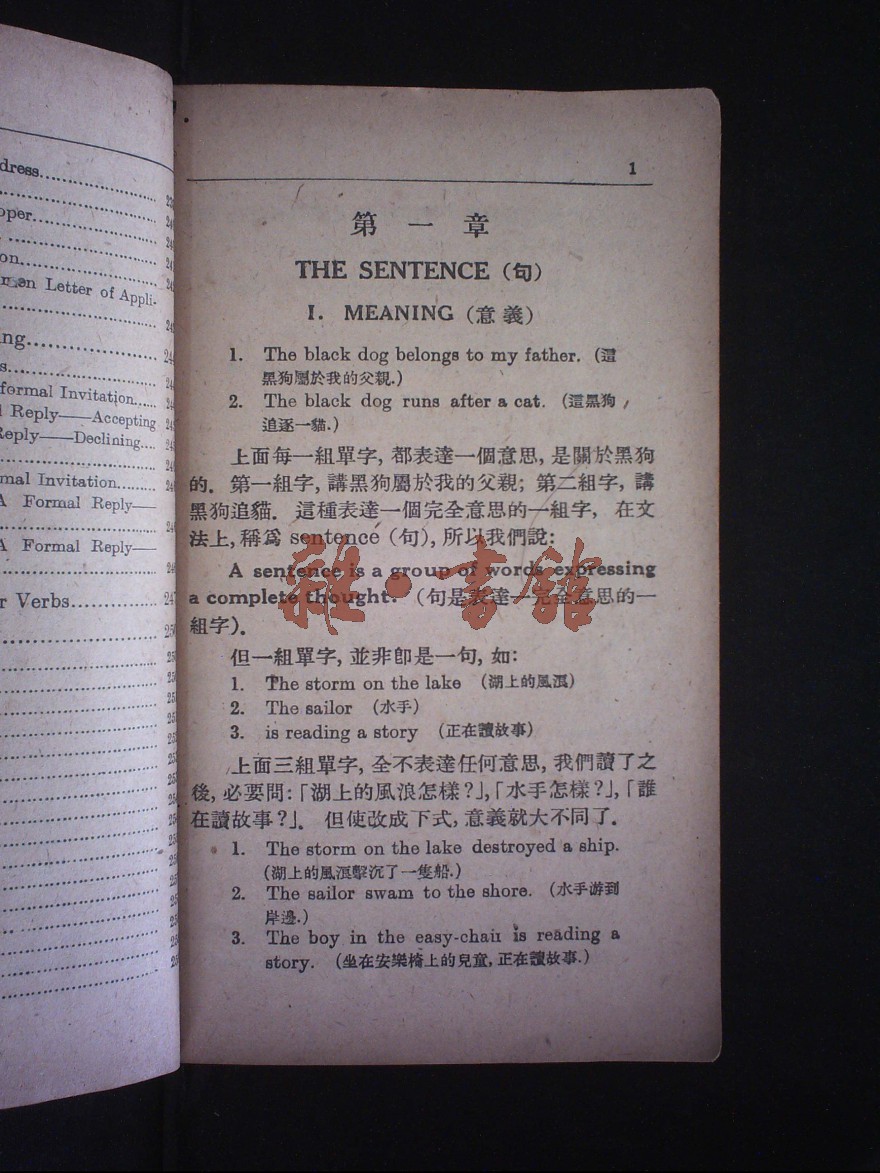 dress
oper
on
en Letter of Appli-
ng
s
formal Invitation
l Reply——Accepting
Reply——Declining
mal Invitation
A Formal Reply—
A Formal Reply—
r Verbs 247
1
第一章
THE SENTENCE (句)
I. MEANING (意義)
1. The black dog belongs to my father. (這
黑狗屬於我的父親.)
2. The black dog runs after a cat. (這黑狗
追逐一貓.)
上面每一組單字, 都表達一個意思, 是關於黑狗
的. 第一組字, 講黑狗屬於我的父親; 第二組字, 講
黑狗追貓. 這種表達一個完全意思的一組字, 在文
法上, 稱爲 sentence (句), 所以我們說:
A sentence is a group of words expressing
a complete thought. (句是表達一完全意思的一
組字).
但一組單字, 並非卽是一句, 如:
1. The storm on the lake (湖上的風浪)
2. The sailor (水手)
3. is reading a story (正在讀故事)
上面三組單字, 全不表達任何意思, 我們讀了之
後, 必要問:「湖上的風浪怎樣?」,「水手怎樣?」,「誰
在讀故事?」. 但使改成下式, 意義就大不同了.
1. The storm on the lake destroyed a ship.
(湖上的風浪擊沉了一隻船.)
2. The sailor swam to the shore. (水手游到
岸邊.)
3. The boy in the easy-chair is reading a
story. (坐在安樂椅上的兒童, 正在讀故事.)
雜·書館